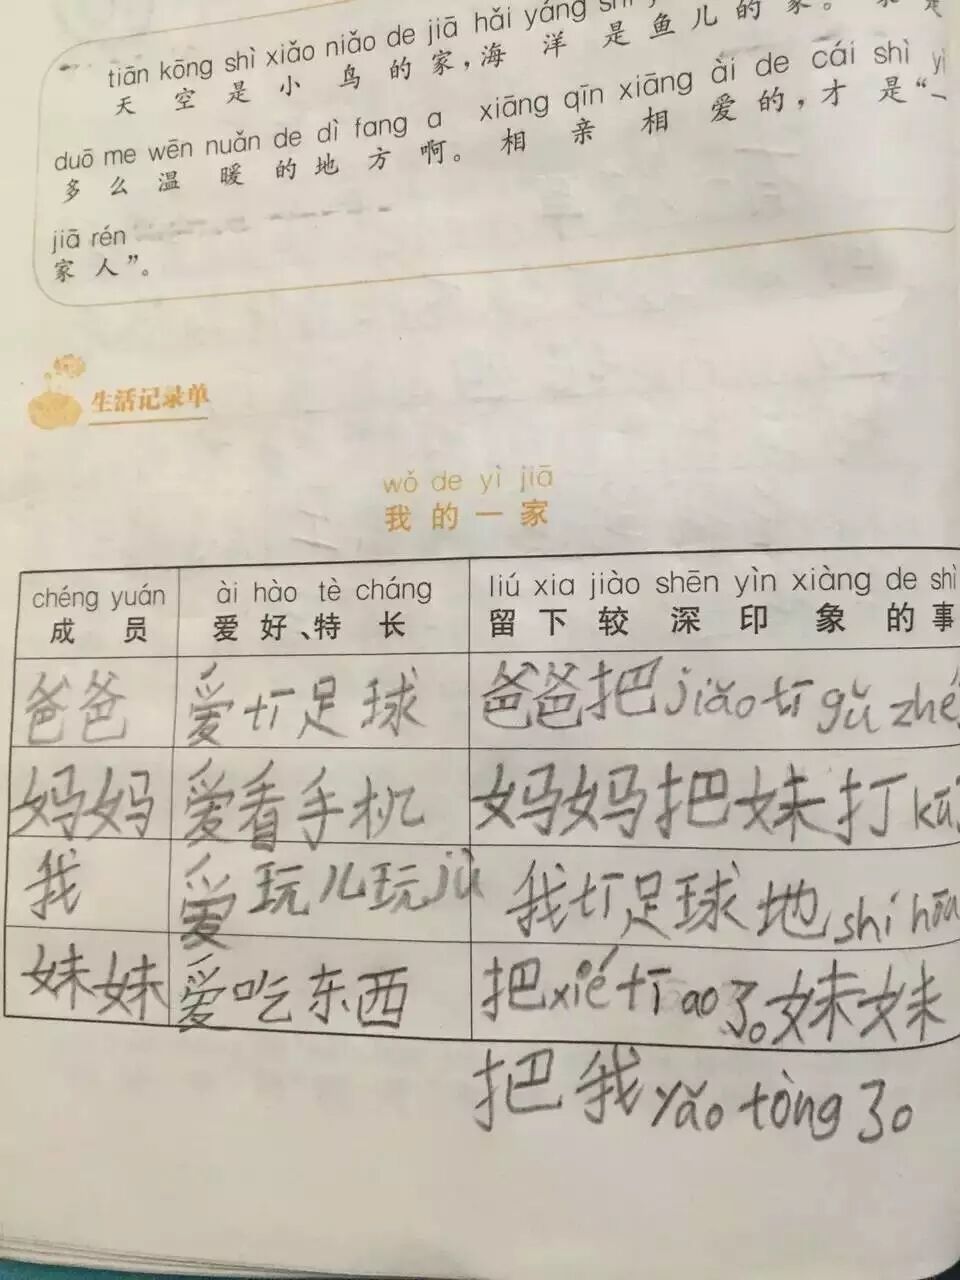 tiān kōng shì xiǎo niǎo de jiā hǎi yáng shì
天空是小鸟的家，海洋是鱼儿的家。
duō me wēn nuǎn de dì fang a xiāng qīn xiāng ài de cái shì yì
多么温暖的地方啊。相亲相爱的，才是“一
jiā rén
家人”。
生活记录单
wǒ de yì jiā
我的一家
chéng yuán ài hào tè cháng liú xia jiào shēn yìn xiàng de shì
成员 爱好、特长 留下较深印象的事
爸爸 爱tī足球 爸爸把jiǎo tī gǔ zhé
妈妈 爱看手机 妈妈把妹打kū
我 爱玩儿玩jù 我tī足球地shí hòu
妹妹 爱吃东西 把xié tī ao了。妹妹
把我yǎo tòng了。